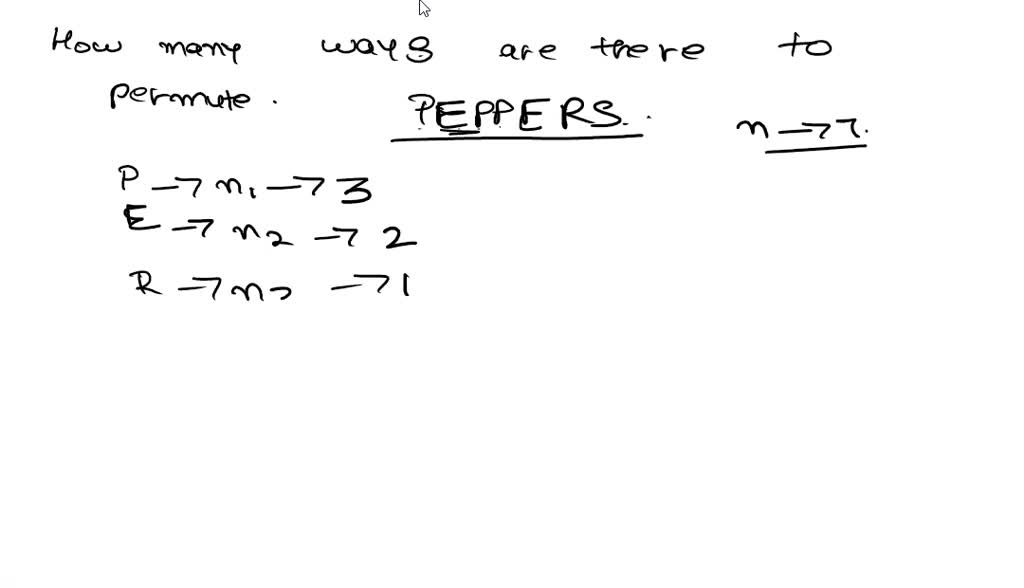 How many ways are there to
permute. PEPPERS. n → 7.
P → n1 → 3
E → n2 → 2
R → n3 → 1